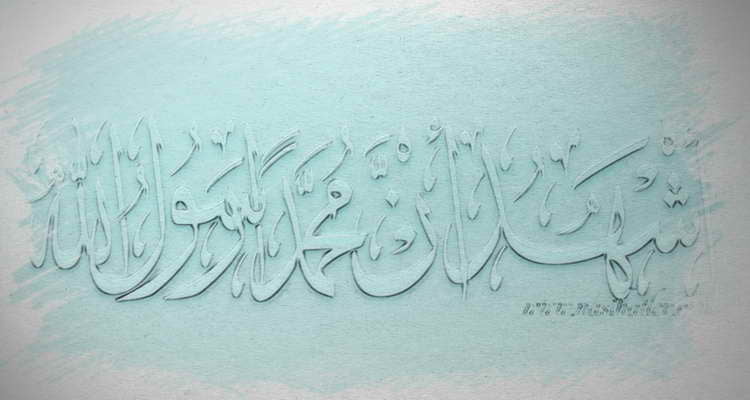 شهد أن محمدا رسول الله